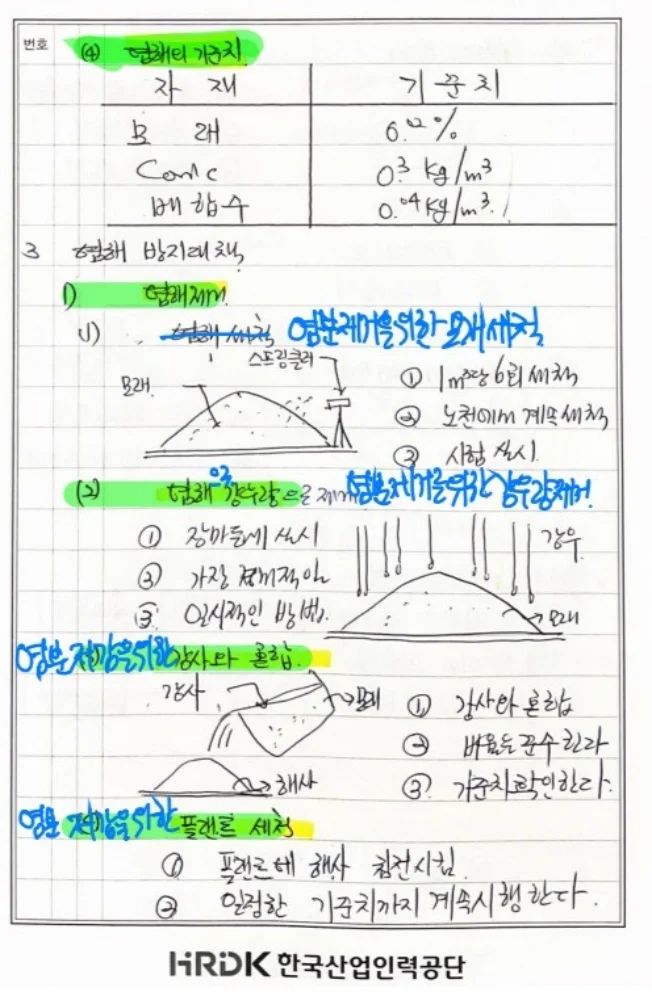 번호
(4) 염해의 기준치
자 재 기 준 치
모 래 0.02%
Conc 0.3 kg/m³
배합수 0.04 kg/m³
3 염해 방지대책
1) 염해제거
(1) 염해 세척 염분제거을위한 모래세척
스프링클러
모래
① 1m³당 6회 세척
② 노천에서 계속세척
③ 시험 실시
(2) 염해 강우량으로 제거 염분제거를위한 강우량제거
① 장마등에 실시
② 가장 경제적안
③ 일시적인 방법
강우
모래
염분 저감을위한 강사와 혼합
강사
모래
해사
① 강사와 혼합
② 비율은 준수한다
③ 기준치확인한다
염분 저감을위한 플랜트 세척
① 플랜트에 해사 침전시킴
② 일정한 기준치까지 계속시행한다.
HRDK 한국산업인력공단